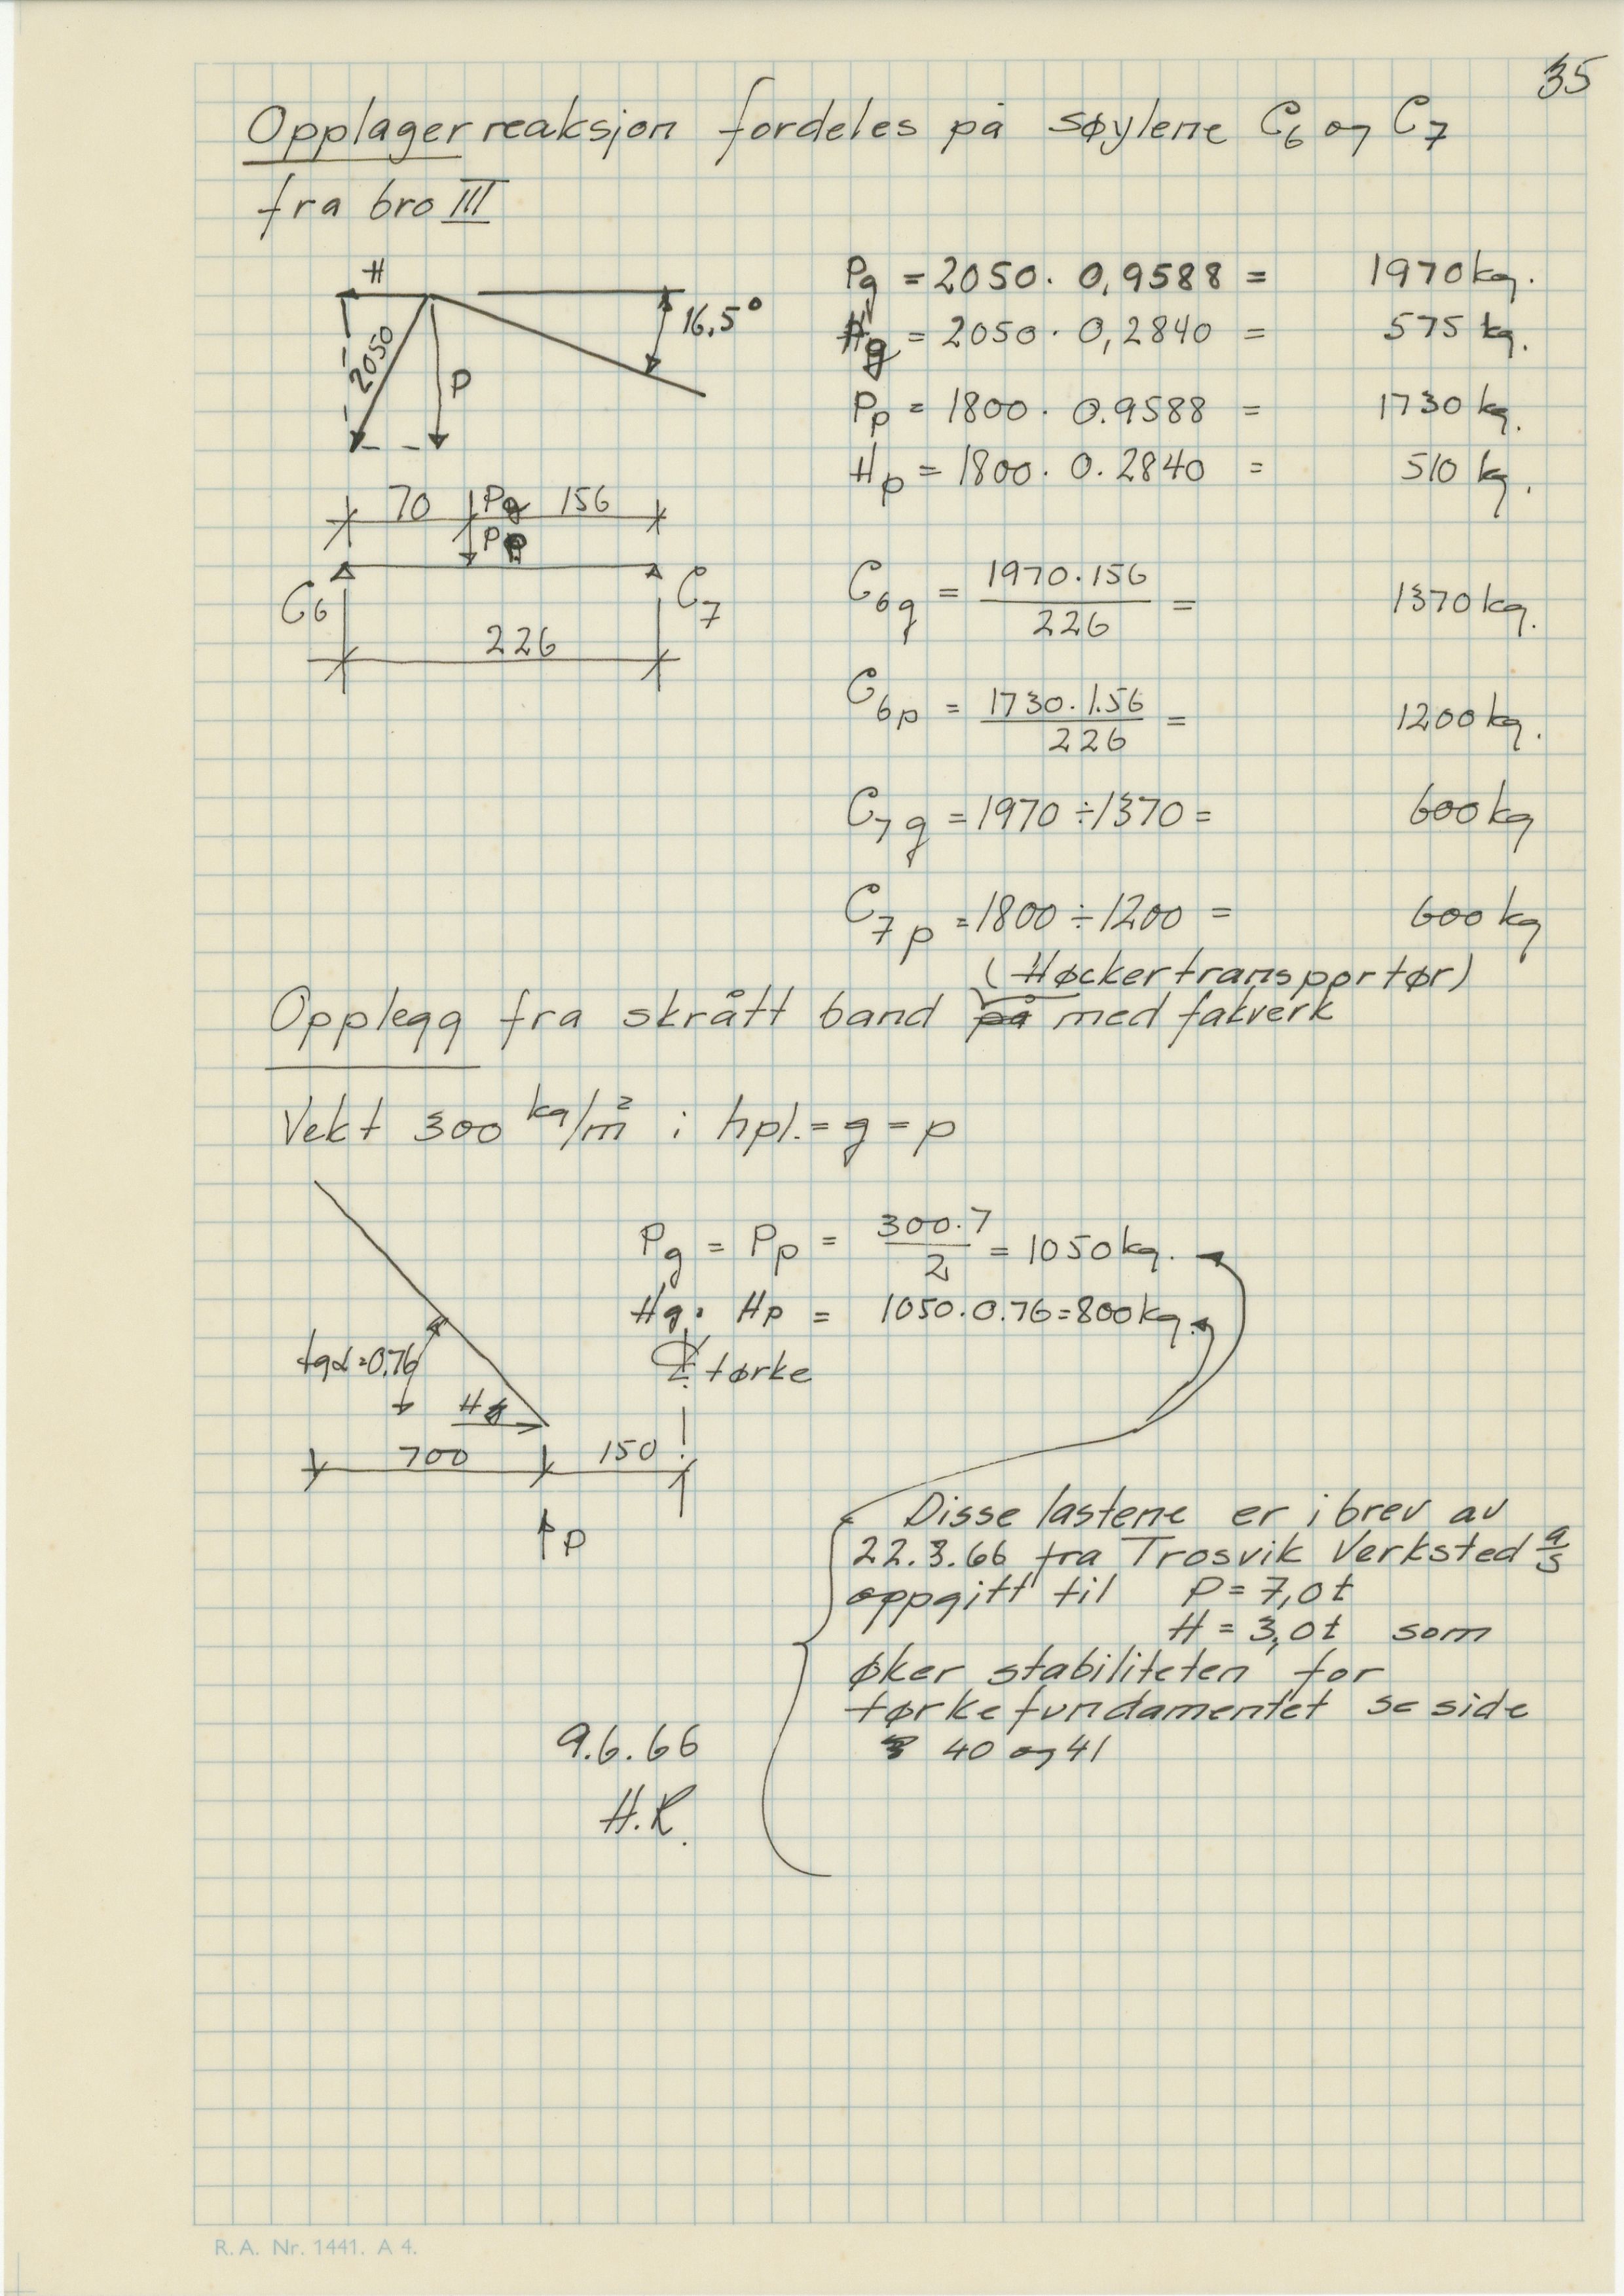 35
Opplagerreaksjon fordeles på søylene C6 og C7
fra bro III
H
16,5°
2050
P
Pg = 2050 · 0,9588 = 1970 kg.
Hg = 2050 · 0,2840 = 575 kg.
Pp = 1800 · 0.9588 = 1730 kg.
Hp = 1800 · 0.2840 = 510 kg.
70 Pg 156
Pp
C6 C7
226
C6g = 1970·156 / 226 = 1370 kg.
C6p = 1730·1.56 / 226 = 1200 kg.
C7g = 1970 ÷ 1370 = 600 kg
C7p = 1800 ÷ 1200 = 600 kg
(Høckertransportør)
Opplegg fra skrått band på med fakverk
Vekt 300 kg/m² i hpl. = g = p
Pg = Pp = 300·7 / 2 = 1050 kg.
Hg. Hp = 1050·0.76=800 kg.
tgα=0.76
tørke
H
700 150
P
Disse lastene er i brev av
22.3.66 fra Trosvik Verksted a/s
oppgitt til P = 7,0 t
H = 3,0 t som
øker stabiliteten for
tørkefundamentet se side
40 og 41
9.6.66
H.R.
R.A. Nr. 1441. A 4.